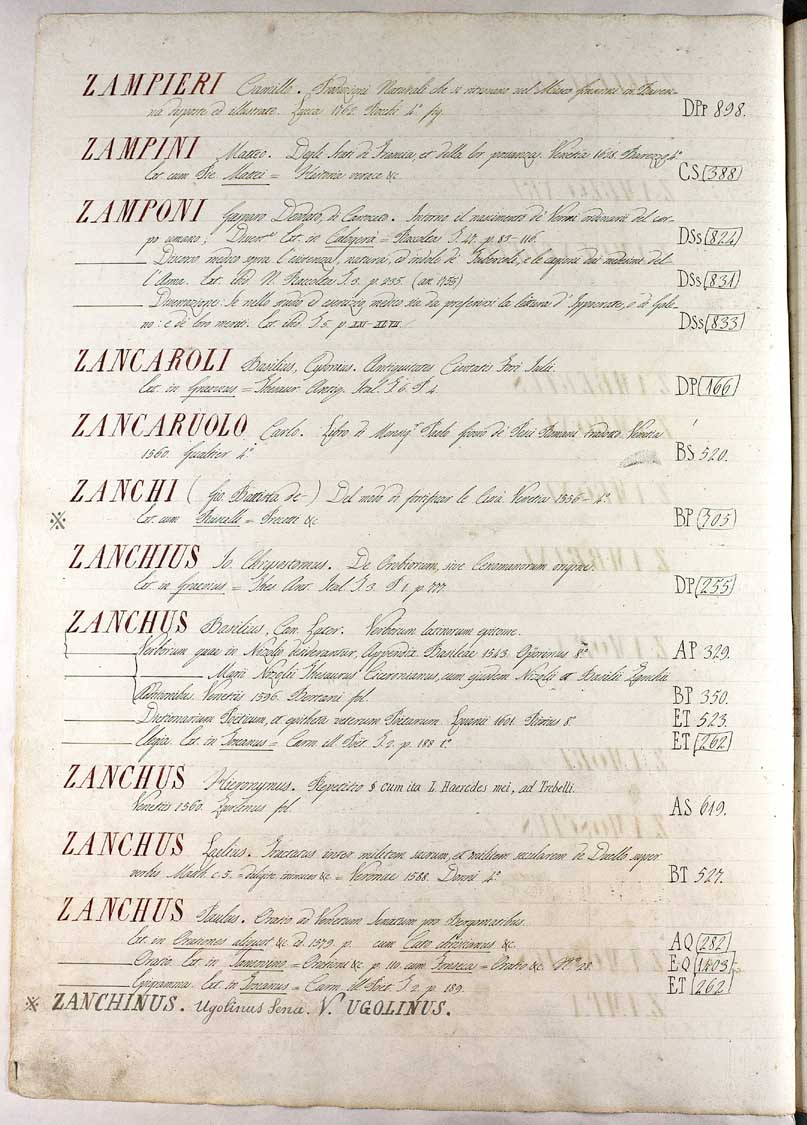 ZAMPIERI Camillo. Produzioni Naturali che si ritrovano nel Museo Ginanni in Raven-
na disposte ed illustrate. Lucca 1762. Rocchi 4.º fig. DPp 898.
ZAMPINI Matteo. Degli Stati di Francia, et della lor potenza. Venetia 1628. Barezzi 4.º
Est cum Mattei = Historia verace &c. CS 388
ZAMPONI Gasparo Deodato, da Intorno al nascimento de' Vermi ordinarii del cor-
po umano; Est. in Calogerà = Raccolta T. 47. p. 83-116. DSs 824
Discorso medico sopra l'esistenza, natura, ed indole de' Tubercoli, e le cagioni dei medesimi del-
l'Asma. Est. ibid. N. Raccolta T. 3. p. 235. (an. 1755) DSs 831
Dissertazione. Se nello studio ed esercizio medico sia da preferirsi la lettura d'Ippocrate, o di Gale-
no: e de' loro meriti. Est. ibid. T. 5. p. DSs 833
ZANCAROLI Basilius, Cydoneus. Antiquitates Civitatis Fori Julii.
Est. in Graevius = Thesaur. Antiq. Ital. T. 6. P. 4. DP 166
ZANCARUOLO Carlo. Libro di Monsig.r Paolo Giovio de' Pesci Romani tradotto. Venetia
1560. Gualtier 4.º BS 520.
ZANCHI (Gio. Battista de') Del modo di fortificar le Città. Venetia 1556 - 4.º
※ Est. cum Ruscelli = Precetti &c. BP 305
ZANCHIUS Jo. Chrysostomus. De Orobiorum, sive Cenomanorum origine.
Est. in Graevius = Thes. Ant. Ital. T. 3. P. 1, p. 777. DP 255
ZANCHUS Basilius, Can. Later. Verborum latinorum epitome.
Verborum quae in Nizolio desiderantur, Appendix. Basileae 1543. Oporinus 8.º AP 329.
Marii Nizolii Thesaurus Ciceronianus, cum ejusdem Nizolii et Basilii Zanchii
Additionibus. Venetiis 1596. fol. BP 350.
Dictionarium Poeticum, et epitheta veterum Poetarum. 1601. 8.º ET 523.
Elegia. Est. in Toscanus = Carm. Ill. Poet. T. 2. p. 188 t.º ET 262
ZANCHUS Hieronymus. Repetitio § cum ita L Haeredes mei, ad Trebell.
Venetiis 1560. Zilettus fol. AS 619.
ZANCHUS Laelius. Tractatus inter militem sacrum, et militem secularem de Duello super
verbis Math. c. 5. &c = Veronae 1588. Donnis 4.º BT 527.
ZANCHUS Paulus. Oratio ad Venetum Senatum pro Bergomatibus.
Est. in Orationes aliquot &c. ed. 1579. p. cum Caro &c. AQ 282
Oratio. Est. in Sansovino = Orationi &c. p. 110. cum Fonseca = Oratio &c. N.º 28 EQ 1403
Epigramma. Est. in Toscanus = Carm. Ill. Poet. T. 2. p. 189. ET 262
※ ZANCHINUS. Ugolinus Sena. V. UGOLINUS.